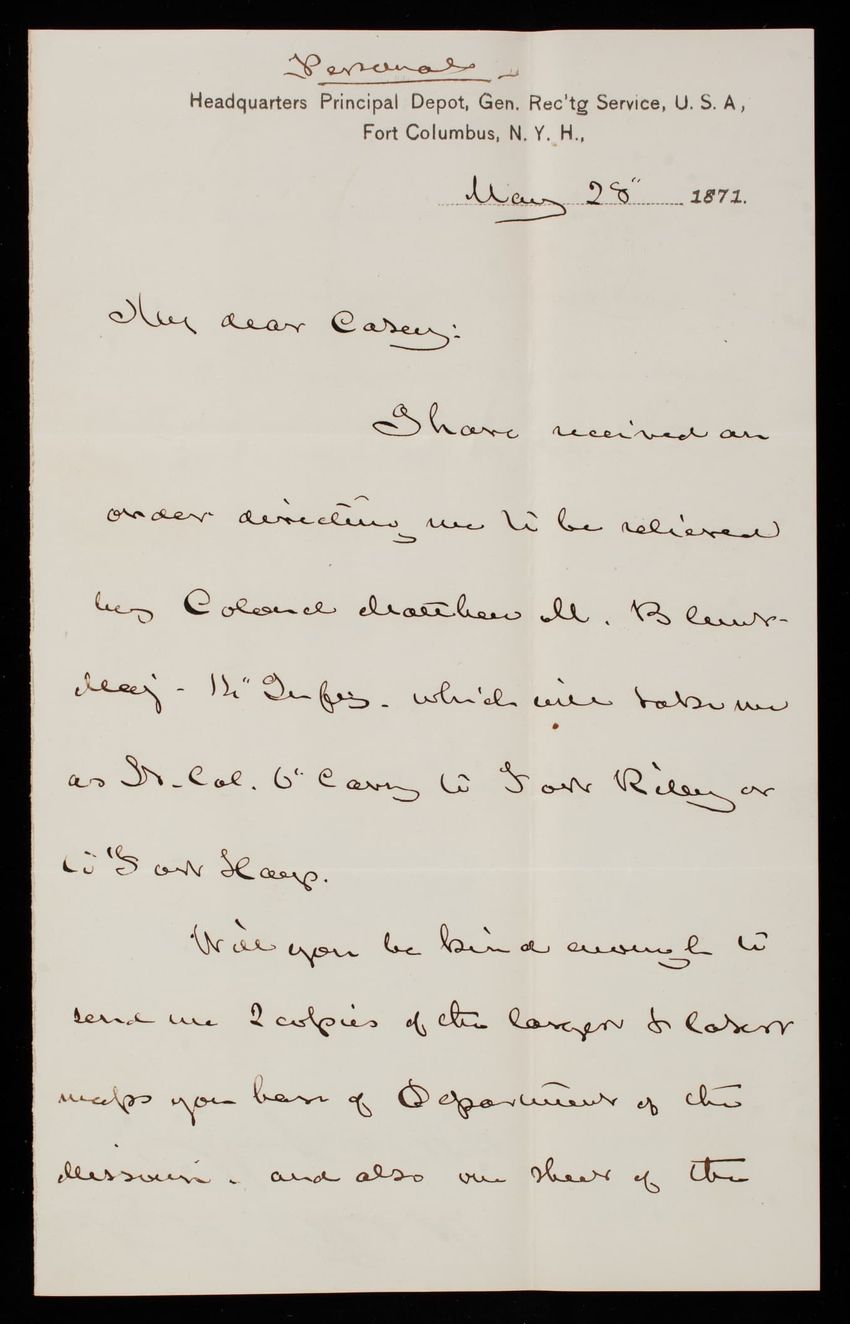 Personal
Headquarters Principal Depot, Gen. Rec'tg Service, U. S. A,
Fort Columbus, N. Y. H.,
May 28" 1871.
My dear Casey:
I have received an
order directing me to be relieved
by Colonel Matthew M. Blunt-
Maj - 14" Infy. which will take me
as Lt. Col. 6" Cavy to Fort Riley or
to Fort Hays.
Will you be kind enough to
send me 2 copies of the largest & latest
maps you have of Department of the
Missouri. and also one sheet of the